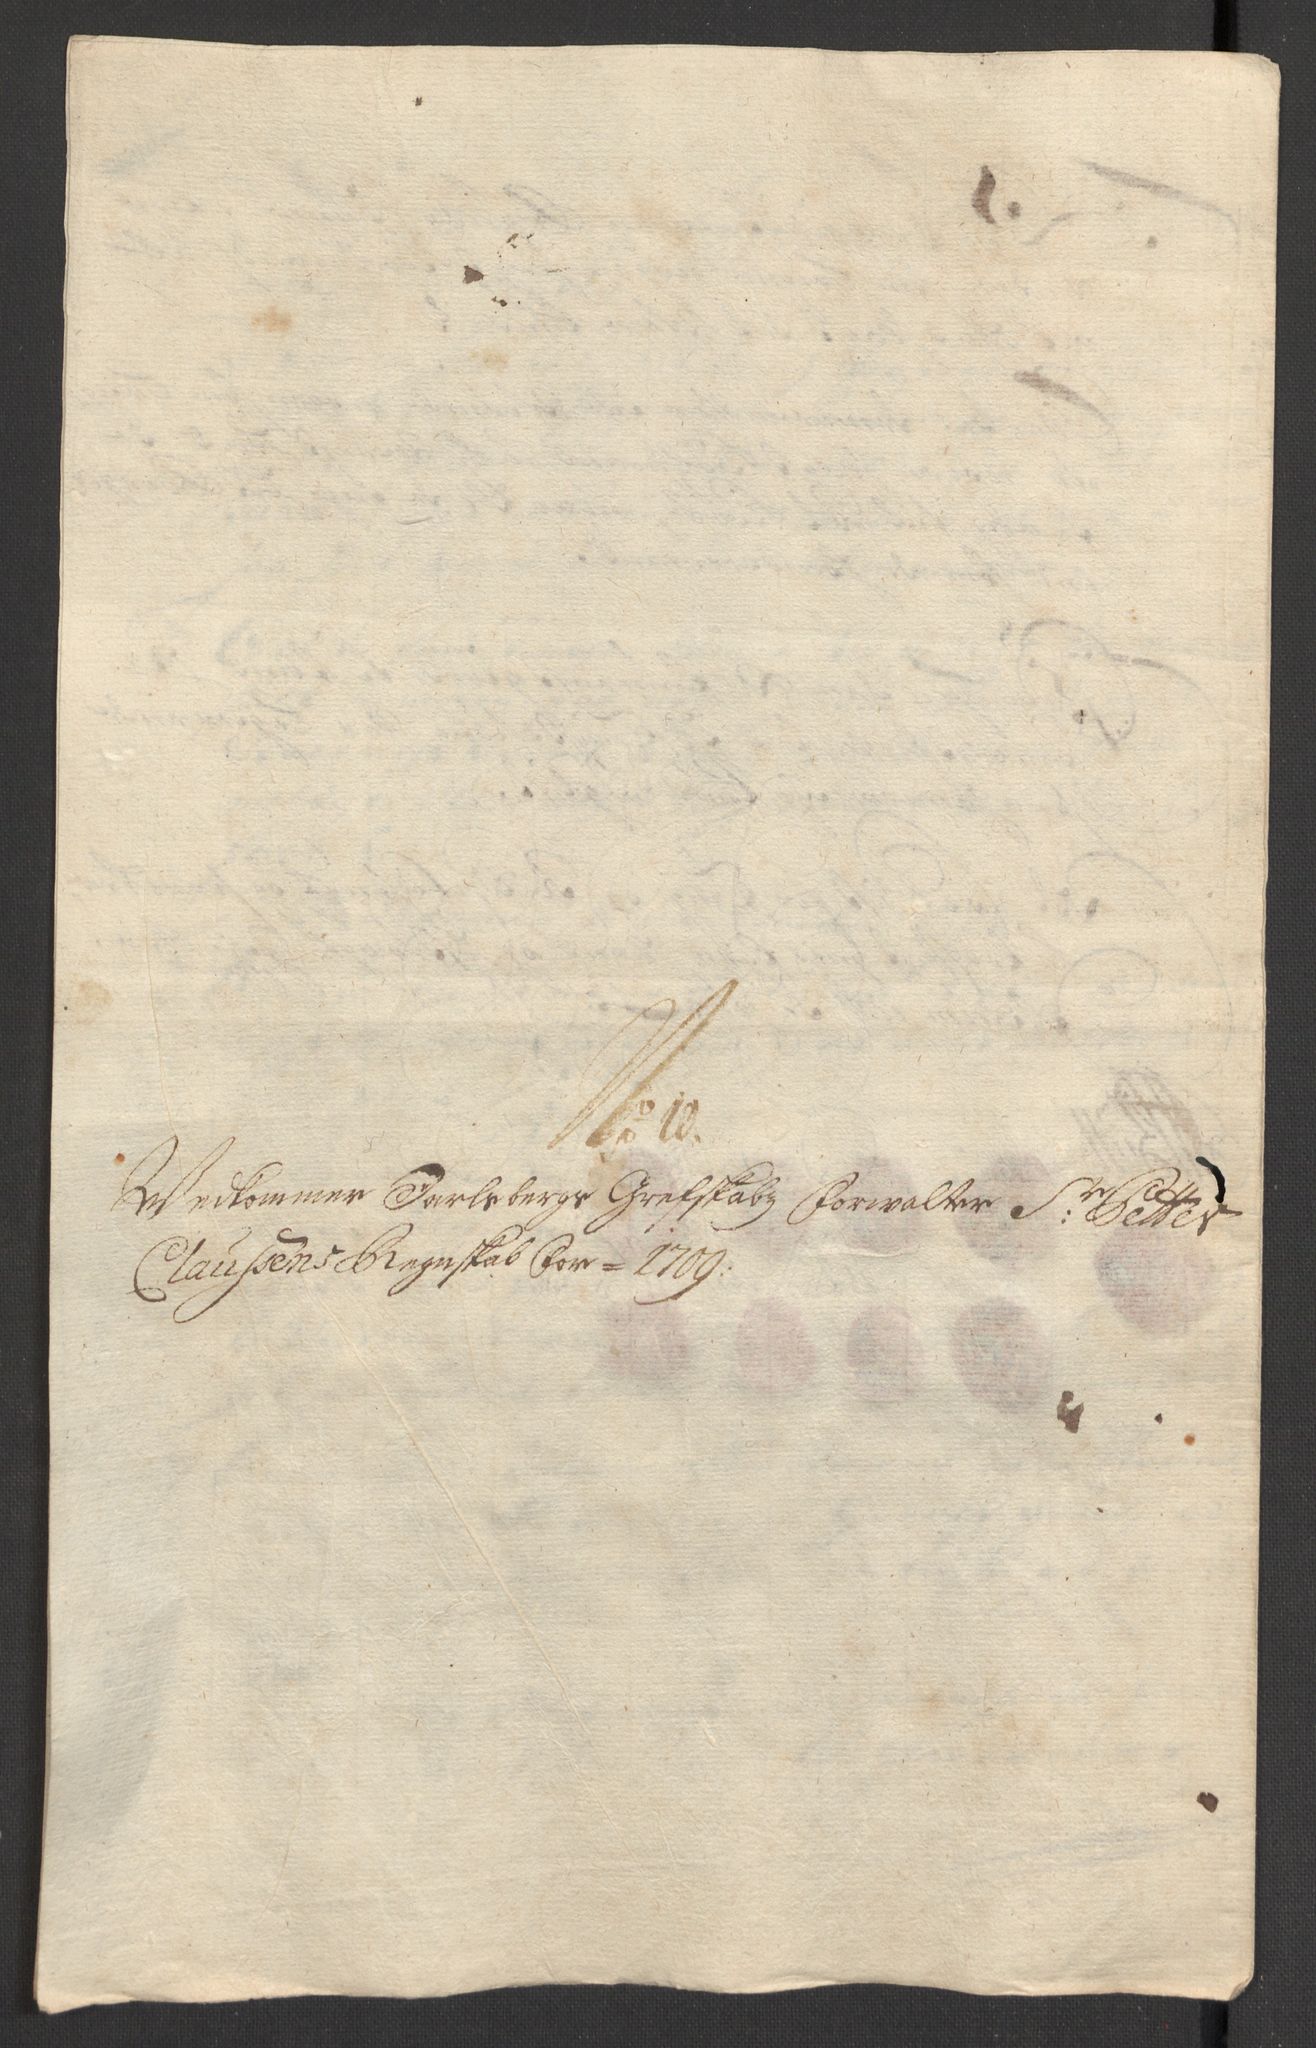 No 10.
Wedkommer Jarlsbergs Grefskabs Forwalter Sr: Petter
Claussens Regnskab For = 1709: